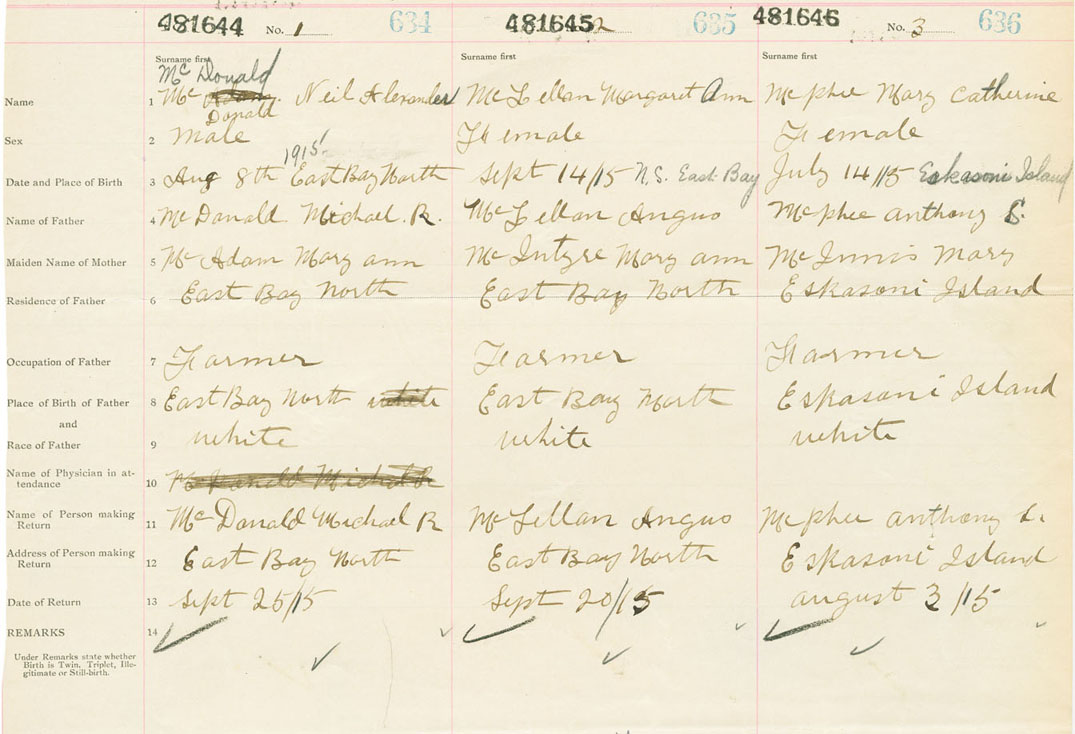 481644 No. 1 634 481645 2 635 481646 No. 3 636
Surname first Surname first Surname first
Mc Donald
Name 1 Mc Adam. Neil Alexander McLellan Margaret Ann Mcphee Mary Catherine
Donald
Sex 2 male Female Female
1915
Date and Place of Birth 3 Aug 8th East Bay North Sept 14/15 N.S. East Bay July 14/15 Eskasoni Island
Name of Father 4 McDonald Michael. R. McLellan Angus Mcphee anthony S.
Maiden Name of Mother 5 McAdam Mary ann McIntyre Mary ann McInnis Mary
Residence of Father 6 East Bay North East Bay North Eskasoni Island
Occupation of Father 7 Farmer Farmer Farmer
Place of Birth of Father 8 East Bay North white East Bay North Eskasoni Island
and
Race of Father 9 white white white
Name of Physician in at-
tendance 10 McDonald Michael R
Name of Person making
Return 11 McDonald Michael R McLellan Angus Mcphee anthony
Address of Person making
Return 12 East Bay North East Bay North Eskasoni Island
Date of Return 13 Sept 25/15 Sept 20/15 august 3/15
REMARKS 14
Under Remarks state whether
Birth is Twin, Triplet, Ille-
gitimate or Still-birth.